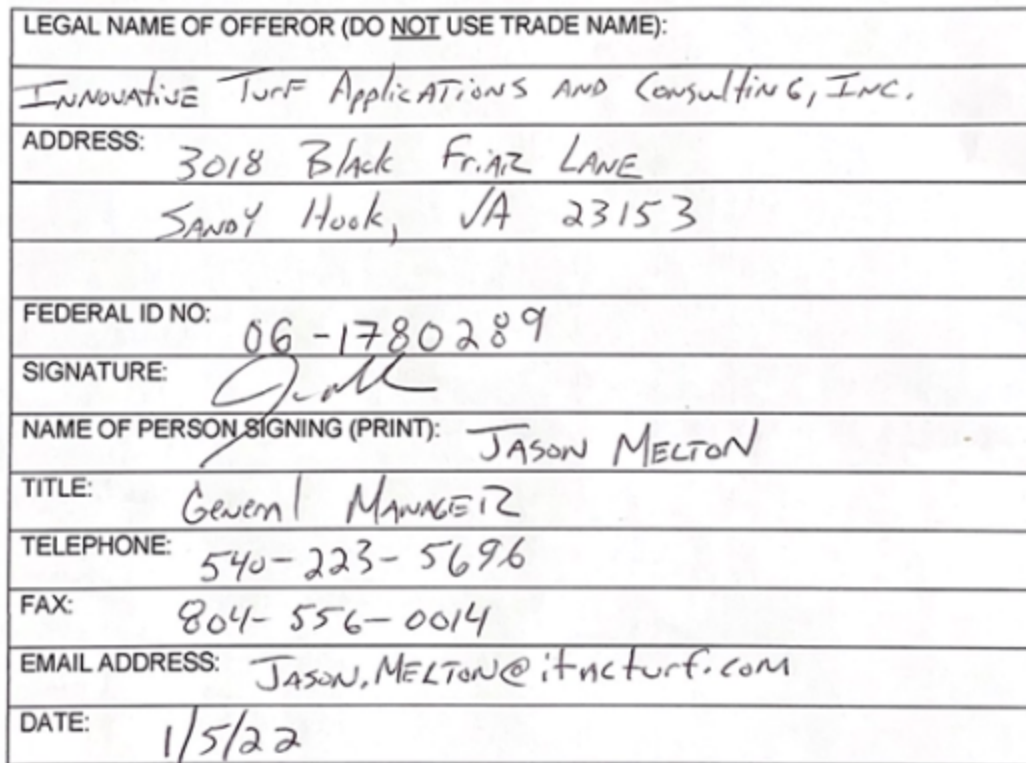 LEGAL NAME OF OFFEROR (DO NOT USE TRADE NAME):
INNOVATIVE TURF APPLICATIONS AND CONSULTING, INC.
ADDRESS: 3018 Black Friar LANE
SANDY Hook, VA 23153
FEDERAL ID NO: 06-1780289
SIGNATURE:
NAME OF PERSON SIGNING (PRINT): JASON MELTON
TITLE: General MANAGER
TELEPHONE: 540-223-5696
FAX: 804-556-0014
EMAIL ADDRESS: JASON.MELTON@itacturf.com
DATE: 1/5/22